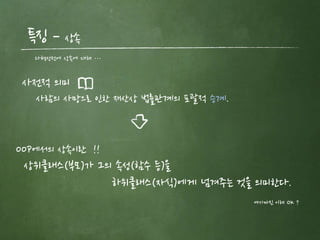 특징 - 상속
사전적 의미
사람의 사망으로 인한 재산상 법률관계의 포괄적 승계.
OOP에서의 상속이란 !!
상위클래스(부모)가 그의 속성(함수 등)을
하위클래스(자식)에게 넘겨주는 것을 의미한다.
여기까진 이해 OK ?